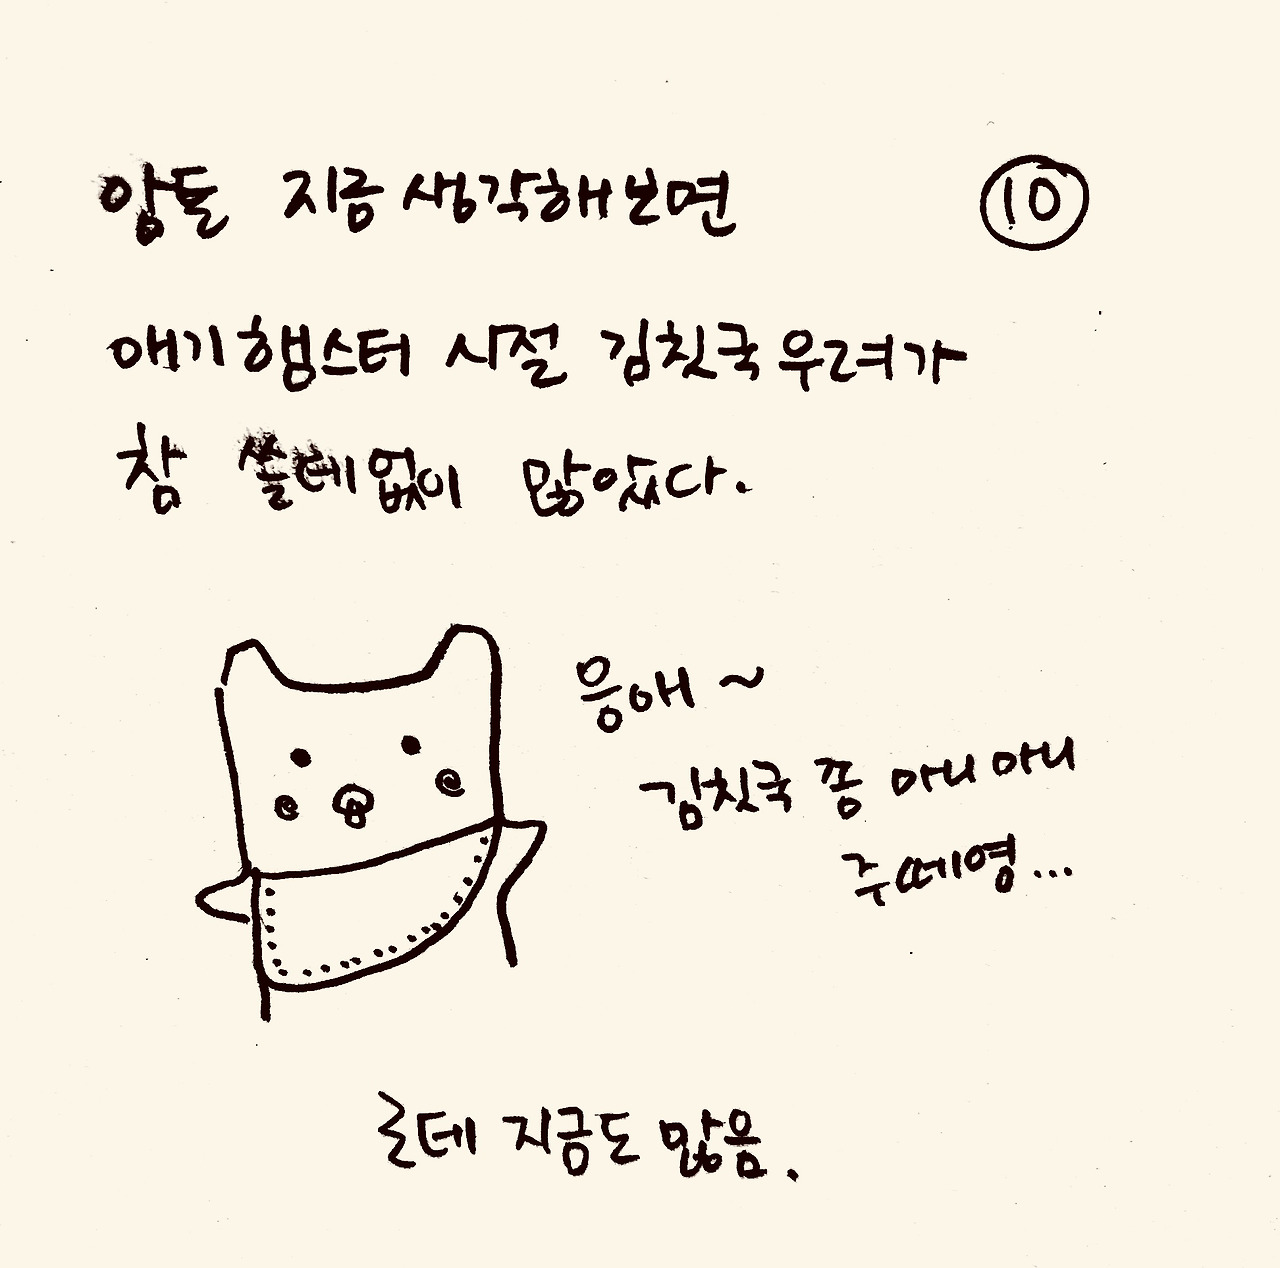 암튼 지금 생각해보면
⑩
애기햄스터 시절 김칫국우려가
참 쓸데없이 많았다.
응애~
김칫국 쫑 아니아니
주떼영...
근데 지금도 많음.